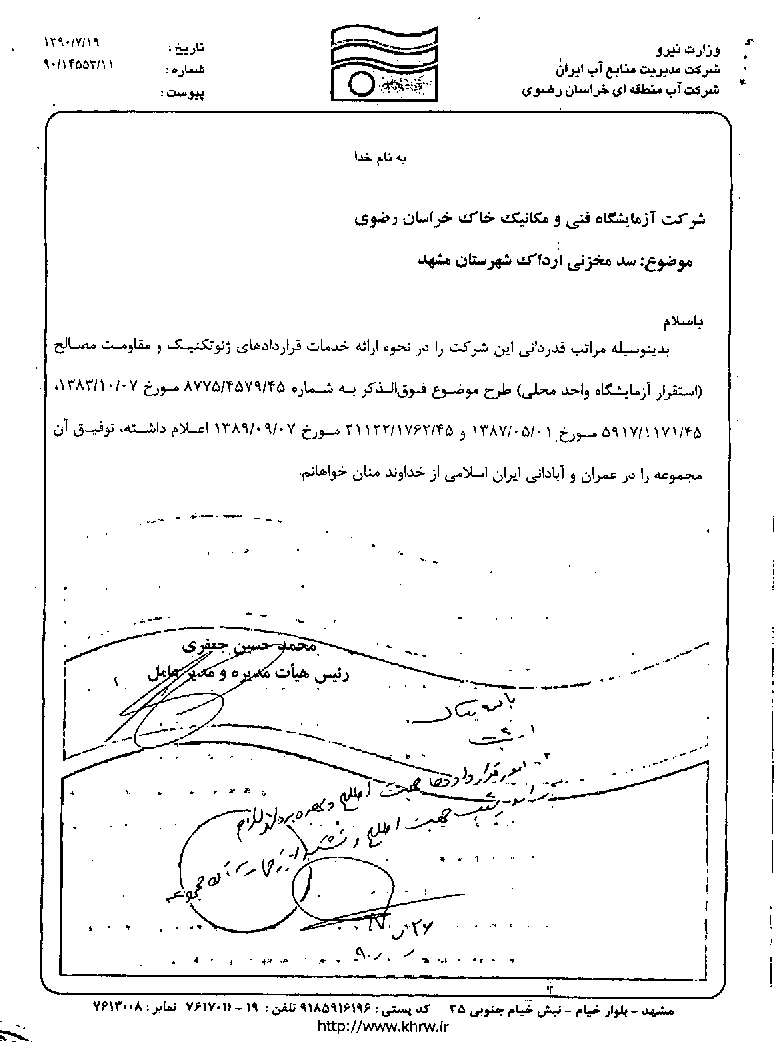 وزارت نیرو
شرکت مدیریت منابع آب ایران
شرکت آب منطقه ای خراسان رضوی
تاریخ : ۱۳۹۰/۷/۱۹
شماره : ۹۰/۱۴۵۵۳/۱۱
پیوست :
به نام خدا
شرکت آزمایشگاه فنی و مکانیک خاک خراسان رضوی
موضوع: سد مخزنی ارداک شهرستان مشهد
باسلام
بدینوسیله مراتب قدردانی این شرکت را در نحوه ارائه خدمات قراردادهای ژئوتکنیک و مقاومت مصالح
(استقرار آزمایشگاه واحد محلی) طرح موضوع فوق‌الذکر به شماره ۸۷۷۵/۴۵۷۹/۴۵ مورخ ۱۳۸۳/۱۰/۰۷،
۵۹۱۷/۱۱۷۱/۴۵ مورخ ۱۳۸۷/۰۵/۰۱ و ۲۱۱۲۲/۱۷۶۲/۴۵ مورخ ۱۳۸۹/۰۹/۰۷ اعلام داشته، توفیق آن
مجموعه را در عمران و آبادانی ایران اسلامی از خداوند منان خواهانم.
محمد حسین جعفری
رئیس هیأت مدیره و مدیر عامل
امور قراردادها جهت اطلاع و بهره برداری لازم
جهت اطلاع و
مشهد - بلوار خیام - نبش خیام جنوبی ۲۵ کد پستی : ۹۱۸۵۹۱۶۱۹۶ تلفن : ۱۹ - ۷۶۱۷۰۱۱ نمابر : ۷۶۱۳۰۰۸
http://www.khrw.ir